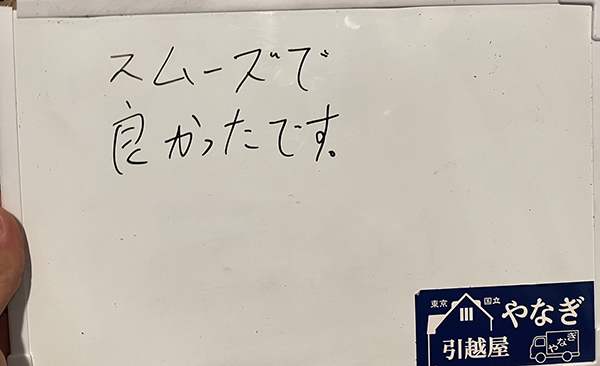 スムーズで
良かったです。
東京 国立 やなぎ
引越屋 やなぎ